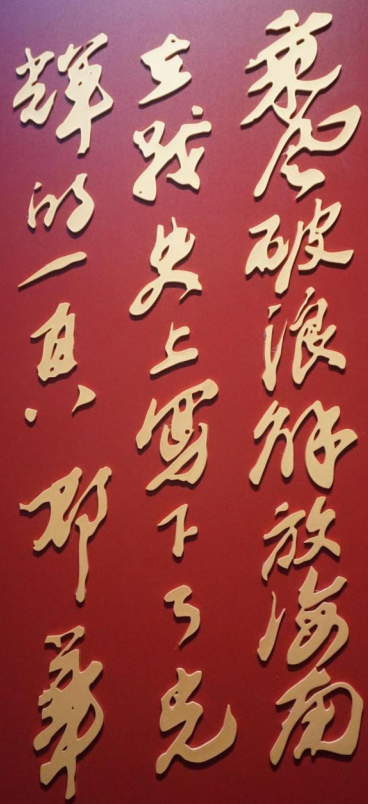 乘风破浪解放海南
在战史上写下了光
辉的一页 邓华